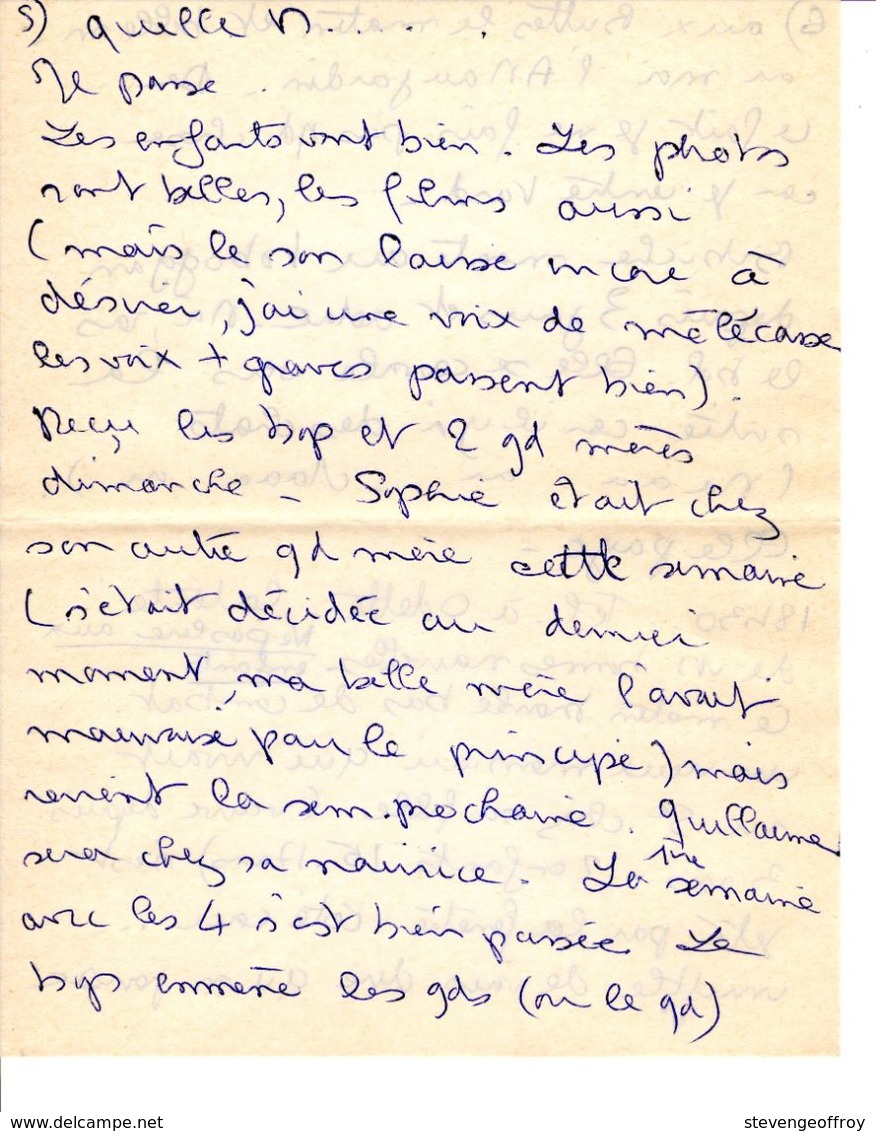 5) quelle N. . . . .
Je passe.
Les enfants vont bien. Les photos
sont belles, les films aussi
(mais le son laisse encore à
désirer, j'ai une voix de mêlécasse
les voix + graves passent bien).
Reçu les bop et 2 gd mères
dimanche - Sophie était chez
son autre gd mère cette semaine
(s'était décidée au dernier
moment, ma belle mère l'avait
mauvaise pour le principe) mais
revient la sem. prochaine. Guillaume
sera chez sa nourrice. La 1ère semaine
avec les 4 s'est bien passée Le
bop emmène les gds (ou le gd)
delcampe.net
stevengeoffroy